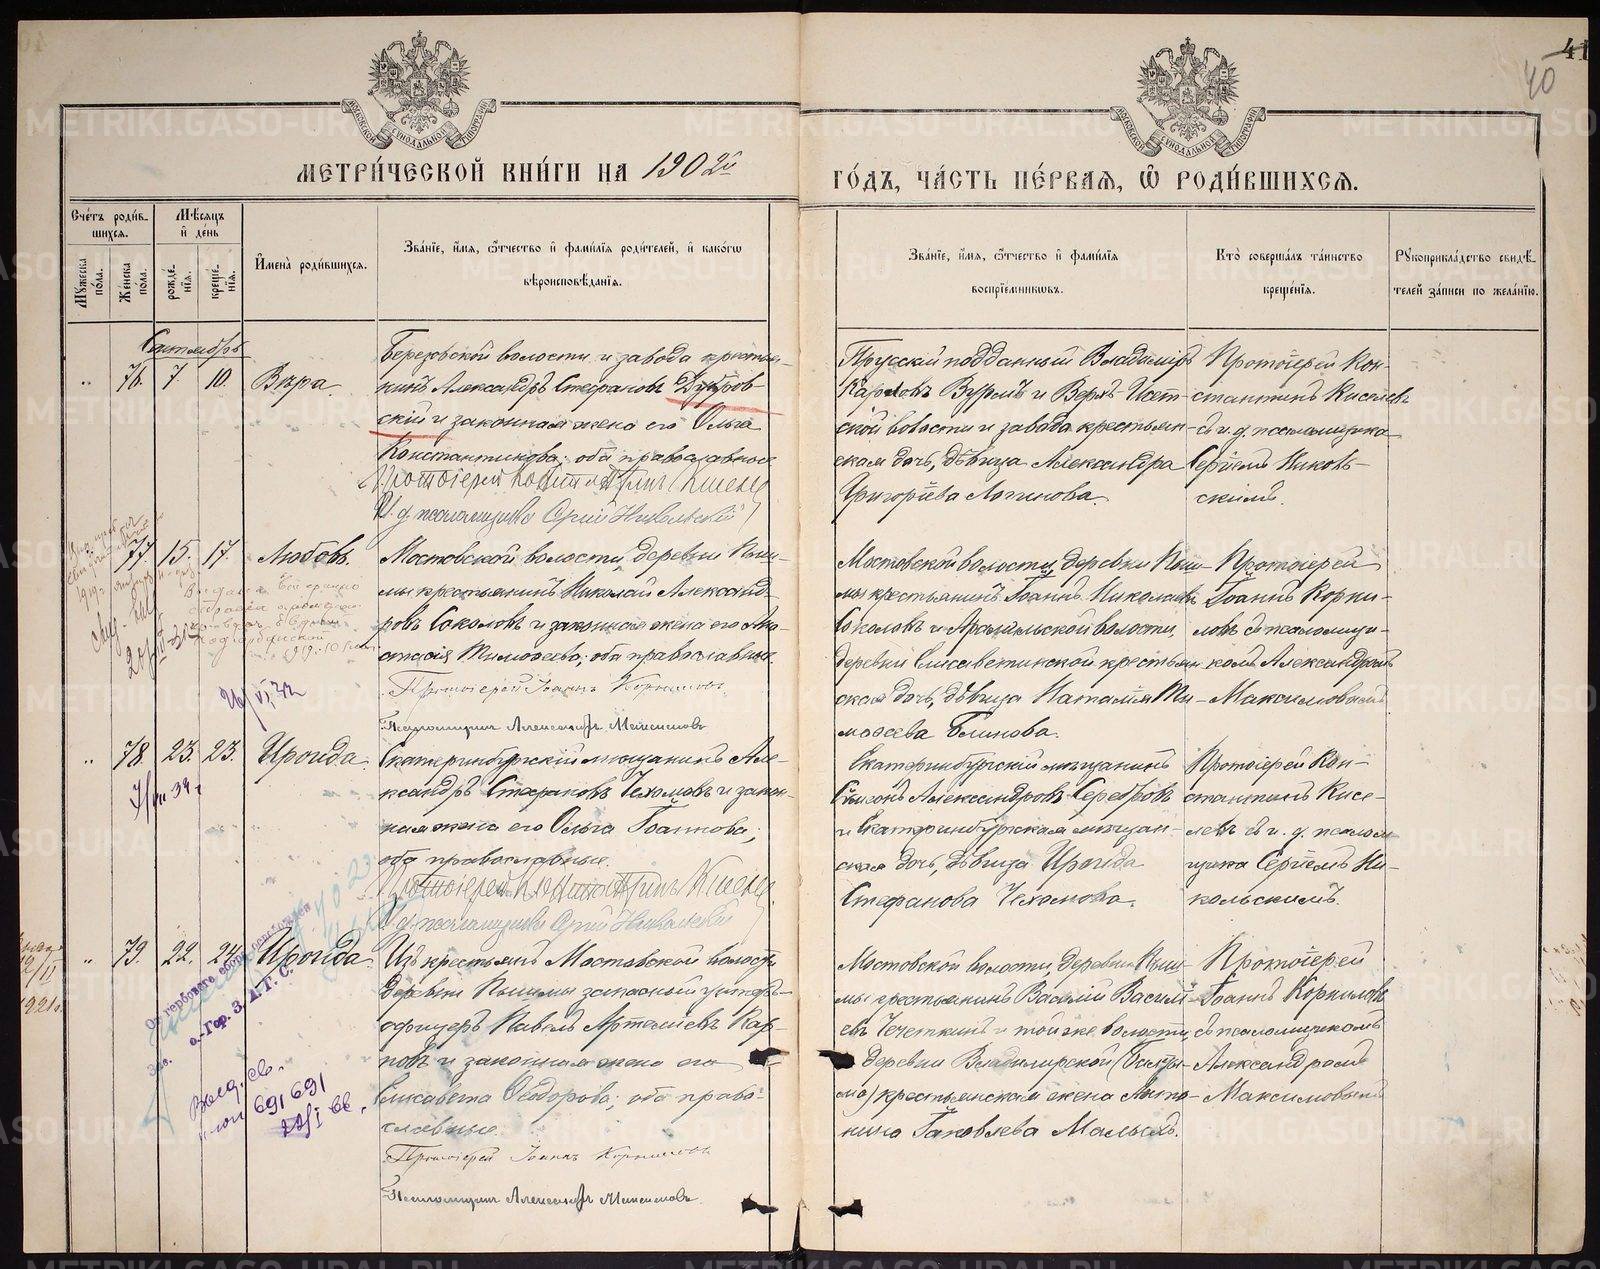 41
40
МОСКОВСКОЙ СѴНОДАЛЬНОЙ ТИПОГРАФІИ
МОСКОВСКОЙ СѴНОДАЛЬНОЙ ТИПОГРАФІИ
МЕТРИ́ЧЕСКОЙ КНИ́ГИ НА 1902й
ГО́ДЪ, ЧА́СТЬ ПЕ́РВАЯ, Ѿ РОДИ́ВШИХСЯ.
Сче́тъ роди́в-
шихся.
Му́жеска по́ла.
Же́нска по́ла.
Мѣ́сяцъ и҆ де́нь
рожде́-
нїя.
креще́-
нїя.
И҆мена̀ роди́вшихся.
Зва́нїе, и҆́мя, ѻ҆́тчество и҆ фами́лїя роди́телей, и҆ како́гѡ
вѣроисповѣ́данїя.
Зва́нїе, и҆́мя, ѻ҆́тчество и҆ фами́лїя
воспрїе́мникѡвъ.
Кто̀ соверша́лъ та́инство
креще́нїя.
Рꙋкоприкла́дство свидѣ́-
телей за́писи по жела́нїю.
Сентябрь
„ 76. 7. 10. Вѣра.
Березовской волости и завода крестья-
нинъ Александръ Стефановъ Дубров-
скій и законная жена его Ольга
Константинова; оба православные
Протоіерей Константинъ Киселевъ
И. д. псаломщика Сергій Никольскій
Прусскій подданный Владиміръ
Карловъ Вурмъ и Верхъ-Исет-
ской волости и завода крестьян-
ская дочь, дѣвица Александра
Григоріева Логинова.
Протоіерей Кон-
стантинъ Киселевъ
съ и. д. псаломщика
Сергіемъ Николь-
скимъ.
77. 15. 17. Любовь.
Мостовской волости, деревни Пыш-
мы крестьянинъ Николай Александ-
ровъ Соколовъ и законная жена его Ана-
стасія Тимоѳеева; оба православные.
Протоіерей Іоаннъ Корниловъ
Псаломщикъ Александръ Максимовъ
Мостовской волости, деревни Пыш-
мы крестьянинъ Іоаннъ Николаевъ
Соколовъ и Арамильской волости,
деревни Елисаветинской крестьян-
ская дочь, дѣвица Наталія Ти-
моѳеева Блинова.
Протоіерей
Іоаннъ Корни-
ловъ съ псаломщи-
комъ Александромъ
Максимовымъ
1919
26/VI 32
„ 78. 23. 23. Ираида.
7/VII 34 г
Екатеринбургскій мѣщанинъ Але-
ксандръ Стефановъ Чехомовъ и закон-
ная жена его Ольга Іоаннова;
оба православные.
Протоіерей Константинъ Киселевъ
И. д. псаломщика Сергій Никольскій
Екатеринбургскій мѣщанинъ
Сѵмеонъ Александровъ Серебровъ
и Екатеринбургская мѣщан-
ская дочь, дѣвица Ираида
Стефанова Чехомова.
Протоіерей Кон-
стантинъ Кисе-
левъ съ и. д. псалом-
щика Сергіемъ Ни-
кольскимъ.
„ 79. 22. 24. Ираида.
1921 г.
От гербового сбора
Выд. св.
691691
Изъ крестьянъ Мостовской волости
деревни Пышмы запасный унтеръ-
офицеръ Павелъ Артеміевъ Кар-
повъ и законная жена его
Елисавета Ѳеодорова; оба право-
славные.
Протоіерей Іоаннъ Корниловъ
Псаломщикъ Александръ Максимовъ.
Мостовской волости, деревни Пыш-
мы крестьянинъ Василій Василі-
евъ Чечеткинъ и той же волости,
деревни Владимирской
крестьянская жена Анто-
нина Іаковлева Малыхъ.
Протоіерей
Іоаннъ Корниловъ
съ псаломщикомъ
Александромъ
Максимовымъ
METRIKI.GASO-URAL.RU